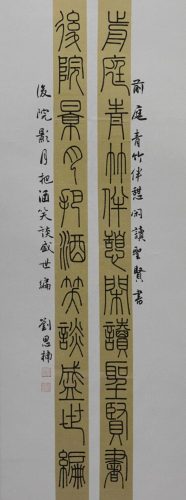 前庭青竹伴憩閑讀聖賢書
前庭青竹伴憩閑讀聖賢書
後院景月把酒笑談盛世編
後院影月把酒笑談盛世編 劉思